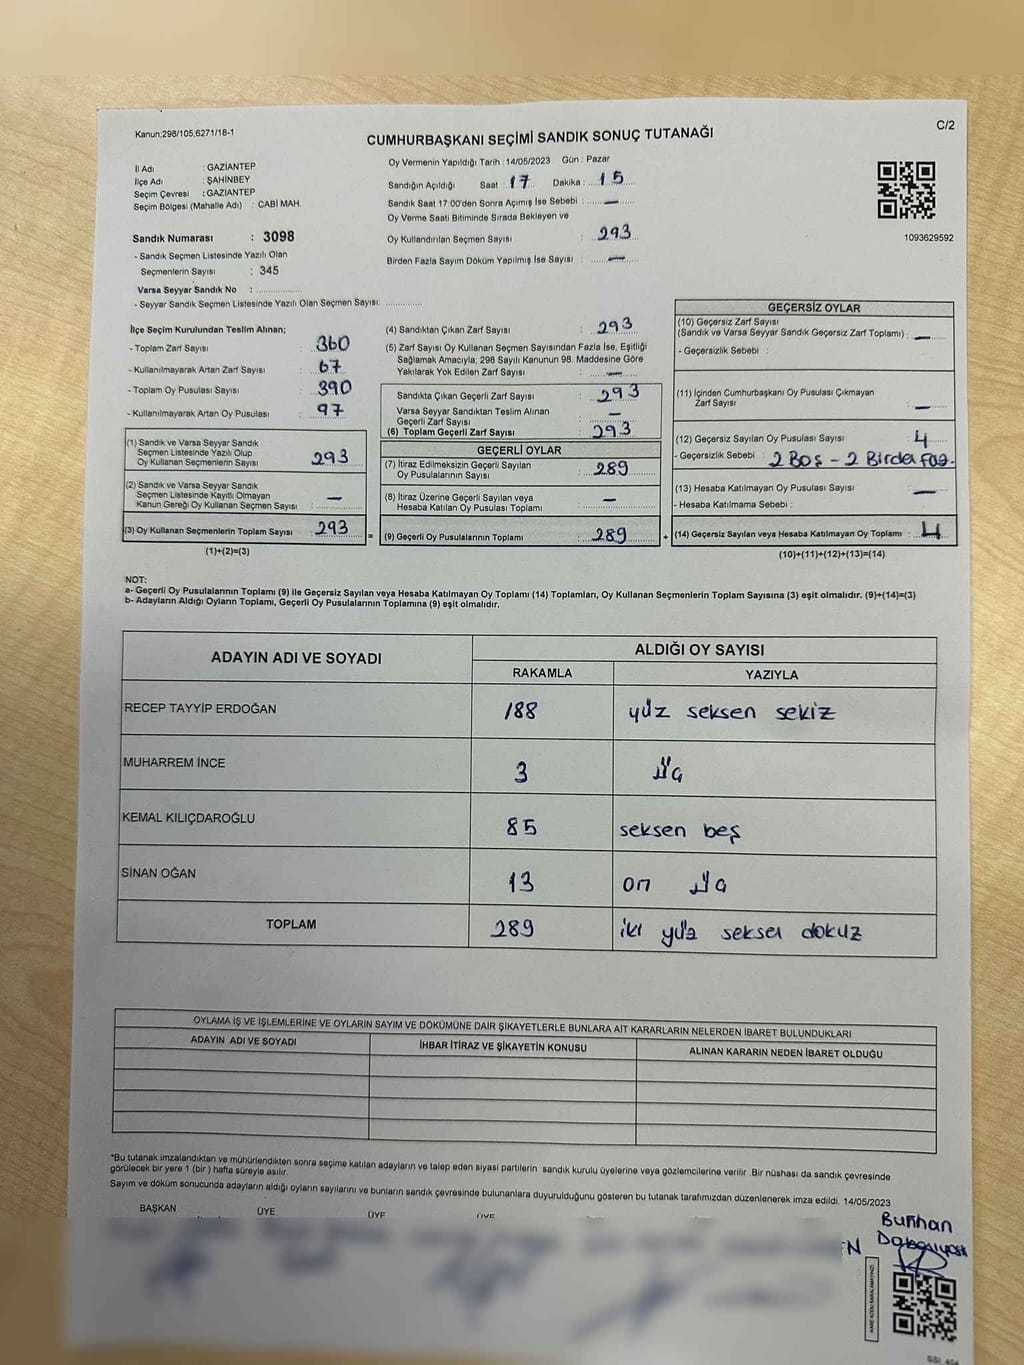 Kanun;298/105,6271/18-1
C/2
CUMHURBAŞKANI SEÇİMİ SANDIK SONUÇ TUTANAĞI
İl Adı : GAZİANTEP
İlçe Adı : ŞAHİNBEY
Seçim Çevresi : GAZİANTEP
Seçim Bölgesi (Mahalle Adı) : CABİ MAH.
Sandık Numarası : 3098
- Sandık Seçmen Listesinde Yazılı Olan
Seçmenlerin Sayısı : 345
Varsa Seyyar Sandık No :
- Seyyar Sandık Seçmen Listesinde Yazılı Olan Seçmen Sayısı:
Oy Vermenin Yapıldığı Tarih : 14/05/2023 Gün : Pazar
Sandığın Açıldığı Saat 17 Dakika : 15
Sandık Saat 17:00'den Sonra Açımış İse Sebebi : —
Oy Verme Saati Bitiminde Sırada Bekleyen ve
Oy Kullandırılan Seçmen Sayısı : 293
Birden Fazla Sayım Döküm Yapılmış İse Sayısı : —
1093629592
İlçe Seçim Kurulundan Teslim Alınan;
- Toplam Zarf Sayısı : 360
- Kullanılmayarak Artan Zarf Sayısı : 67
- Toplam Oy Pusulası Sayısı : 390
- Kullanılmayarak Artan Oy Pusulası : 97
(1) Sandık ve Varsa Seyyar Sandık
Seçmen Listesinde Yazılı Olup
Oy Kullanan Seçmenlerin Sayısı : 293
(2) Sandık ve Varsa Seyyar Sandık
Seçmen Listesinde Kayıtlı Olmayan
Kanun Gereği Oy Kullanan Seçmen Sayısı : —
(3) Oy Kullanan Seçmenlerin Toplam Sayısı : 293
(1)+(2)=(3)
(4) Sandıktan Çıkan Zarf Sayısı : 293
(5) Zarf Sayısı Oy Kullanan Seçmen Sayısından Fazla İse, Eşitliği
Sağlamak Amacıyla, 298 Sayılı Kanunun 98. Maddesine Göre
Yakılarak Yok Edilen Zarf Sayısı : —
Sandıkta Çıkan Geçerli Zarf Sayısı : 293
Varsa Seyyar Sandıktan Teslim Alınan
Geçerli Zarf Sayısı : —
(6) Toplam Geçerli Zarf Sayısı : 293
GEÇERLİ OYLAR
(7) İtiraz Edilmeksizin Geçerli Sayılan
Oy Pusulalarının Sayısı : 289
(8) İtiraz Üzerine Geçerli Sayılan veya
Hesaba Katılan Oy Pusulası Toplamı : —
= (9) Geçerli Oy Pusulalarının Toplamı : 289 +
GEÇERSİZ OYLAR
(10) Geçersiz Zarf Sayısı
(Sandık ve Varsa Seyyar Sandık Geçersiz Zarf Toplamı) : —
- Geçersizlik Sebebi :
(11) İçinden Cumhurbaşkanı Oy Pusulası Çıkmayan
Zarf Sayısı : —
(12) Geçersiz Sayılan Oy Pusulası Sayısı : 4
- Geçersizlik Sebebi : 2 Boş - 2 Birden Faz.
(13) Hesaba Katılmayan Oy Pusulası Sayısı : —
- Hesaba Katılmama Sebebi :
(14) Geçersiz Sayılan veya Hesaba Katılmayan Oy Toplamı : 4
(10)+(11)+(12)+(13)=(14)
NOT:
a- Geçerli Oy Pusulalarının Toplamı (9) ile Geçersiz Sayılan veya Hesaba Katılmayan Oy Toplamı (14) Toplamları, Oy Kullanan Seçmenlerin Toplam Sayısına (3) eşit olmalıdır. (9)+(14)=(3)
b- Adayların Aldığı Oyların Toplamı, Geçerli Oy Pusulalarının Toplamına (9) eşit olmalıdır.
ADAYIN ADI VE SOYADI
ALDIĞI OY SAYISI
RAKAMLA YAZIYLA
RECEP TAYYİP ERDOĞAN 188 yüz seksen sekiz
MUHARREM İNCE 3 üç
KEMAL KILIÇDAROĞLU 85 seksen beş
SİNAN OĞAN 13 on üç
TOPLAM 289 iki yüz seksen dokuz
OYLAMA İŞ VE İŞLEMLERİNE VE OYLARIN SAYIM VE DÖKÜMÜNE DAİR ŞİKAYETLERLE BUNLARA AİT KARARLARIN NELERDEN İBARET BULUNDUKLARI
ADAYIN ADI VE SOYADI İHBAR İTİRAZ VE ŞİKAYETİN KONUSU ALINAN KARARIN NEDEN İBARET OLDUĞU
*Bu tutanak imzalandıktan ve mühürlendikten sonra seçime katılan adayların ve talep eden siyasi partilerin sandık kurulu üyelerine veya gözlemcilerine verilir .Bir nüshası da sandık çevresinde
görülecek bir yere 1 (bir ) hafta süreyle asılır.
Sayım ve döküm sonucunda adayların aldığı oyların sayılarını ve bunların sandık çevresinde bulunanlara duyurulduğunu gösteren bu tutanak tarafımızdan düzenlenerek imza edildi. 14/05/2023
BAŞKAN ÜYE ÜYE ÜYE
Burhan